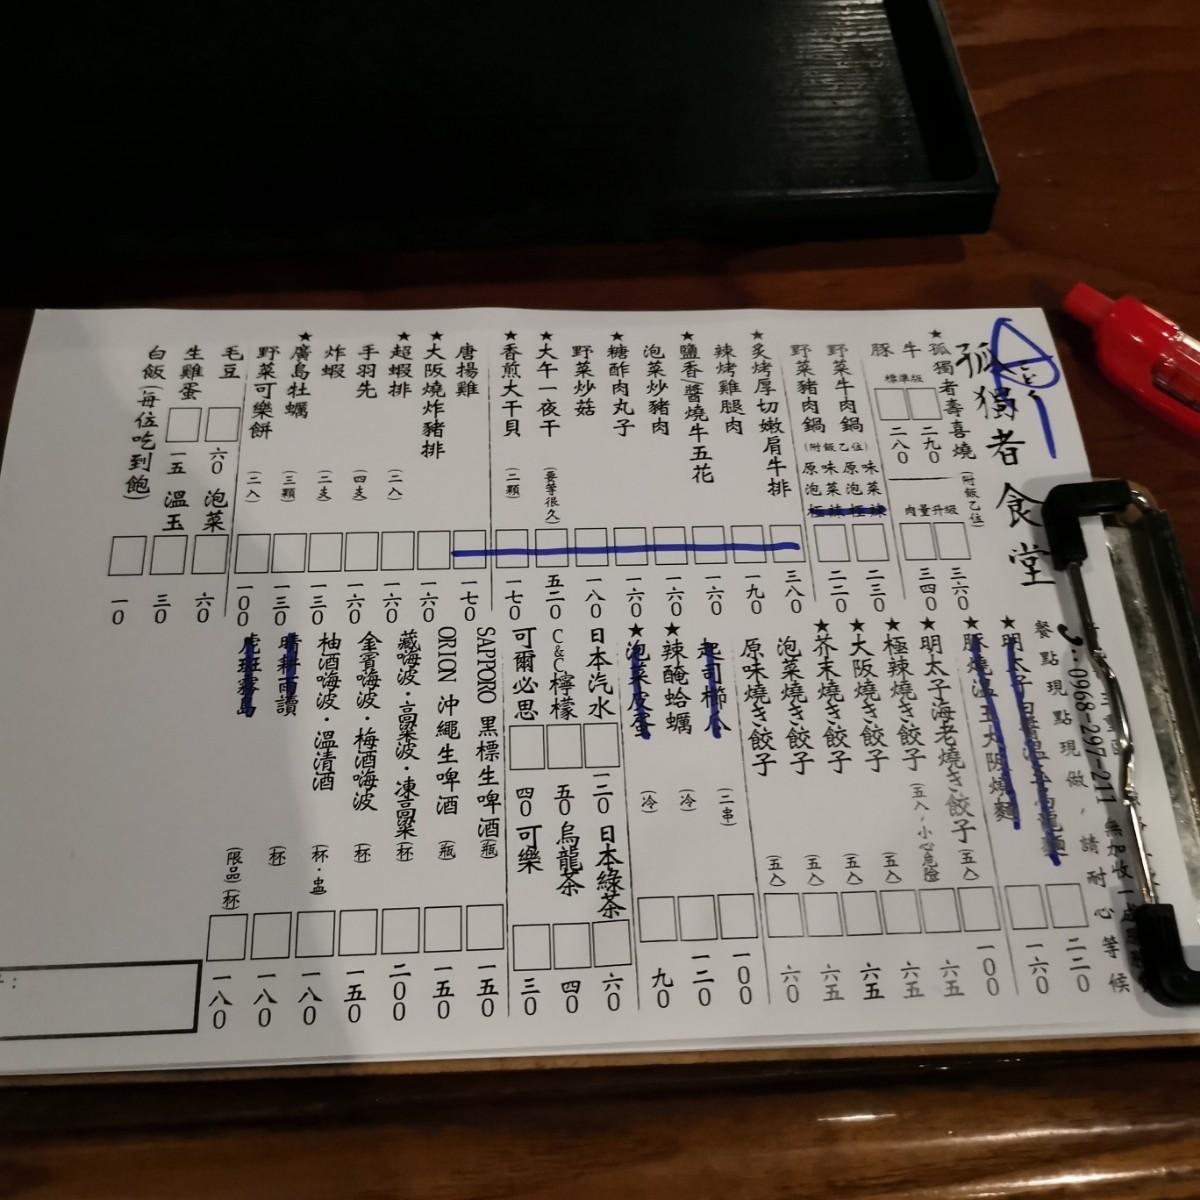 孤獨者食堂
★孤獨者壽喜燒(附飯乙位)
標準版
肉量升級
牛 二九0 三六0
豚 二八0 三四0
野菜牛肉鍋 原味 泡菜 極辣 二三0
野菜豬肉鍋 原味 泡菜 極辣 二二0
(附飯乙位)
★炙烤厚切嫩肩牛排 三八0
辣烤雞腿肉 一九0
★鹽香/醬燒牛五花 一六0
泡菜炒豬肉 一六0
★糖酢肉丸子 一六0
野菜炒菇 一八0
★大午一夜干(要等很久) 五二0
★香煎大干貝(二顆) 一七0
唐揚雞 一七0
★大阪燒炸豬排 一六0
★超蝦排(二入) 一六0
手羽先(四支) 一六0
炸蝦(二支) 一三0
★廣島牡蠣(三顆) 一三0
野菜可樂餅(二入) 一00
毛豆 六0 泡菜 六0
生雞蛋 一五 溫玉 三0
白飯(每位吃到飽) 一0
餐點現點現做，請耐心等候
0968-297-211 無加收一成
二二0
★豚燒溫玉大阪燒麵 一六0
★明太子海老燒き餃子(五入) 一00
★極辣燒き餃子(五入，小心危險) 六五
★大阪燒き餃子(五入) 六五
★芥末燒き餃子(五入) 六五
泡菜燒き餃子(五入) 六五
原味燒き餃子(五入) 六0
起司櫛瓜(二串) 一00
★辣醃蛤蠣(冷) 一二0
★泡菜皮蛋(冷) 九0
日本汽水 一二0 日本綠茶 六0
C&C檸檬 五0 烏龍茶 四0
可爾必思 四0 可樂 三0
SAPPORO 黑標生啤酒(瓶) 一五0
ORION 沖繩生啤酒(瓶) 一五0
藏嗨波·高粱波·凍高粱(杯) 二00
金賓嗨波·梅酒嗨波(杯) 一五0
柚酒嗨波·溫清酒(杯·盅) 一八0
晴耕雨讀(杯) 一八0
虎斑霧島(限品)(杯) 一八0